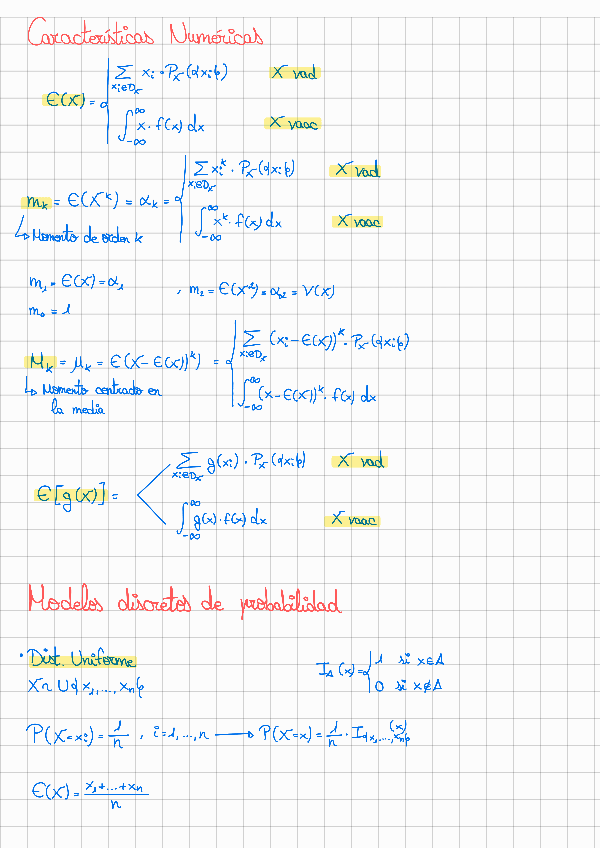 Características Numéricas
E(X) = { ∑_{xi∈Dx} xi · P_X({xi}) X vad
∫_{-∞}^{∞} x · f(x) dx X vaac
m_k = E(X^k) = α_k = { ∑_{xi∈Dx} xi^k · P_X({xi}) X vad
∫_{-∞}^{∞} x^k · f(x) dx X vaac
↳ Momento de orden k
m_1 = E(X) = α_1 , m_2 = E(X^2) = α_2 = V(X)
m_0 = 1
M_k = μ_k = E(X-E(X))^k) = { ∑_{xi∈Dx} (xi-E(X))^k · P_X({xi})
∫_{-∞}^{∞} (x-E(X))^k · f(x) dx
↳ Momento centrado en
la media
E[g(X)] = ∑_{xi∈Dx} g(xi) · P_X({xi}) X vad
∫_{-∞}^{∞} g(x) · f(x) dx X vaac
Modelos discretos de probabilidad
• Dist. Uniforme
X ~ U{x_1,...,x_n}
I_A(x) = { 1 si x∈A
0 si x∉A
P(X=xi) = 1/n , i=1,...,n → P(X=x) = 1/n · I_{x_1,...,x_n}(x)
E(X) = x_1+...+x_n / n